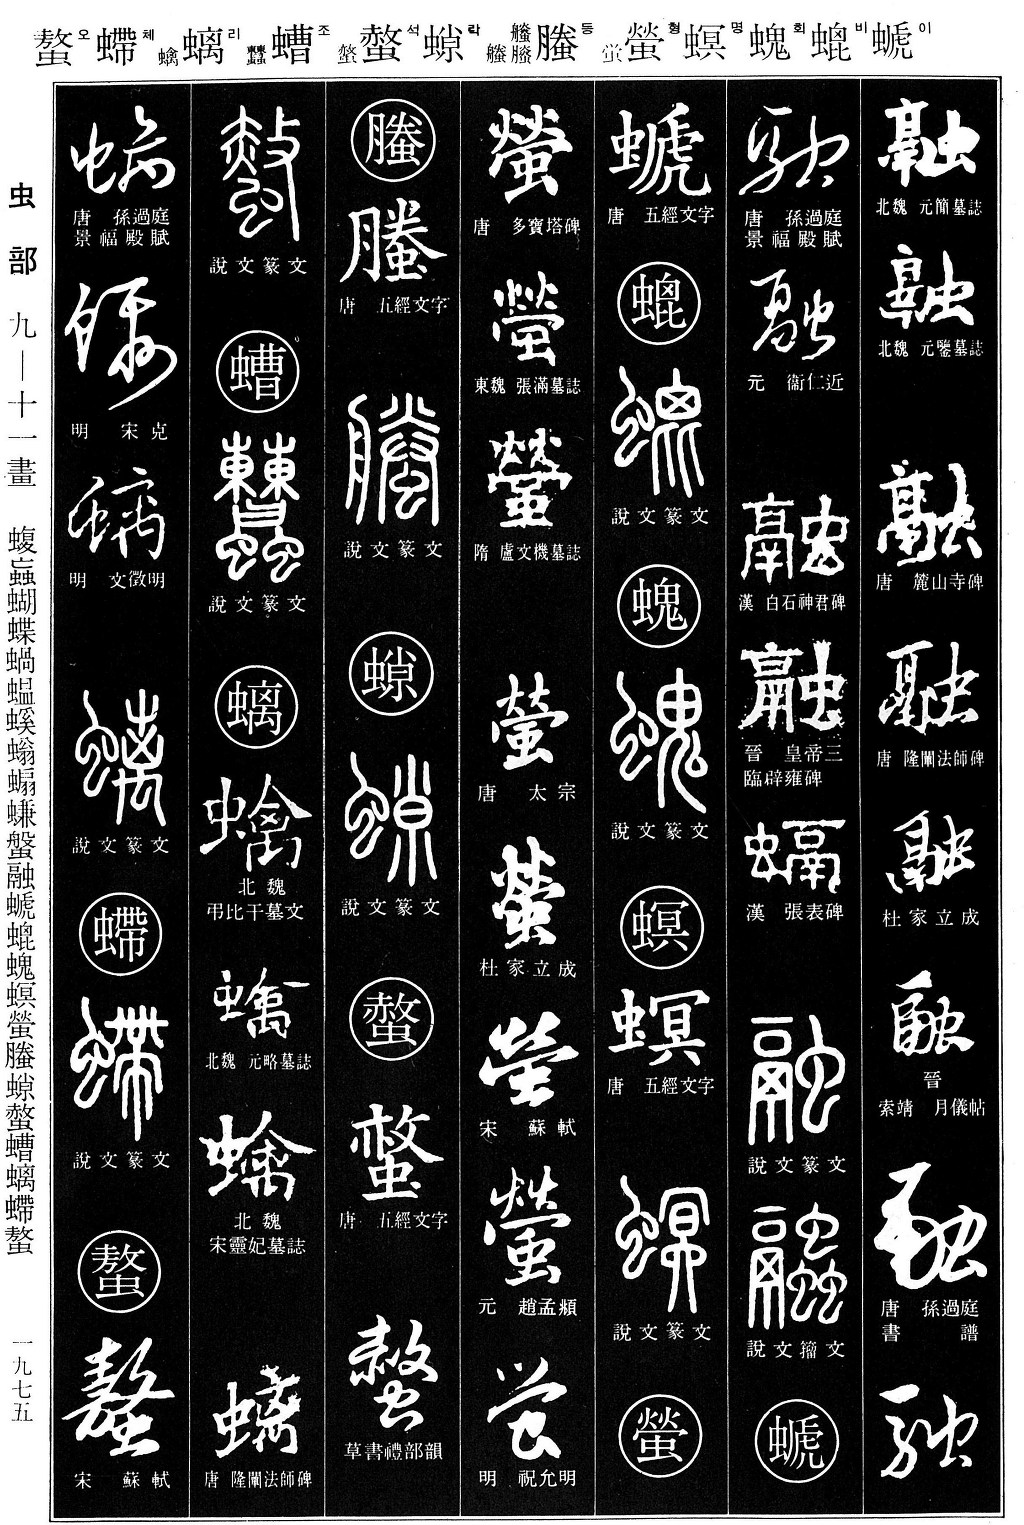 螯오 䗖체 螭리 螬조 螫석 螈락 螣등 螢형 螟명 螝회 螕비 螔이
虫部 九—十一畫
蝮蝱蝴蝶蝸蝹螇螉螎螊螌融螔螕螝螟螢螣螈螫螬螭䗖螯
一九七五
融
北魏 元簡墓誌
融
北魏 元鑒墓誌
融
唐 麓山寺碑
融
唐 隆闡法師碑
融
杜家立成
融
晉
索靖 月儀帖
融
唐 孫過庭
書譜
融
融
唐 孫過庭
景福殿賦
融
元 衞仁近
融
漢 白石神君碑
融
晉 皇帝三
臨辟雍碑
融
漢 張表碑
融
說文篆文
融
說文籀文
螔
螔
唐 五經文字
螕
螕
說文篆文
螝
螝
說文篆文
螟
螟
唐 五經文字
螟
說文篆文
螢
螢
唐 多寶塔碑
螢
東魏 張滿墓誌
螢
隋 盧文機墓誌
螢
唐 太宗
螢
杜家立成
螢
宋 蘇軾
螢
元 趙孟頫
螢
明 祝允明
螣
螣
唐 五經文字
螣
說文篆文
螈
螈
說文篆文
螫
螫
唐 五經文字
螫
草書禮部韻
螫
說文篆文
螬
螬
說文篆文
螭
螭
北魏
弔比干墓文
螭
北魏 元略墓誌
螭
北魏
宋靈妃墓誌
螭
唐 隆闡法師碑
螭
唐 孫過庭
景福殿賦
螭
明 宋克
螭
明 文徵明
螭
說文篆文
䗖
䗖
說文篆文
螯
螯
宋 蘇軾